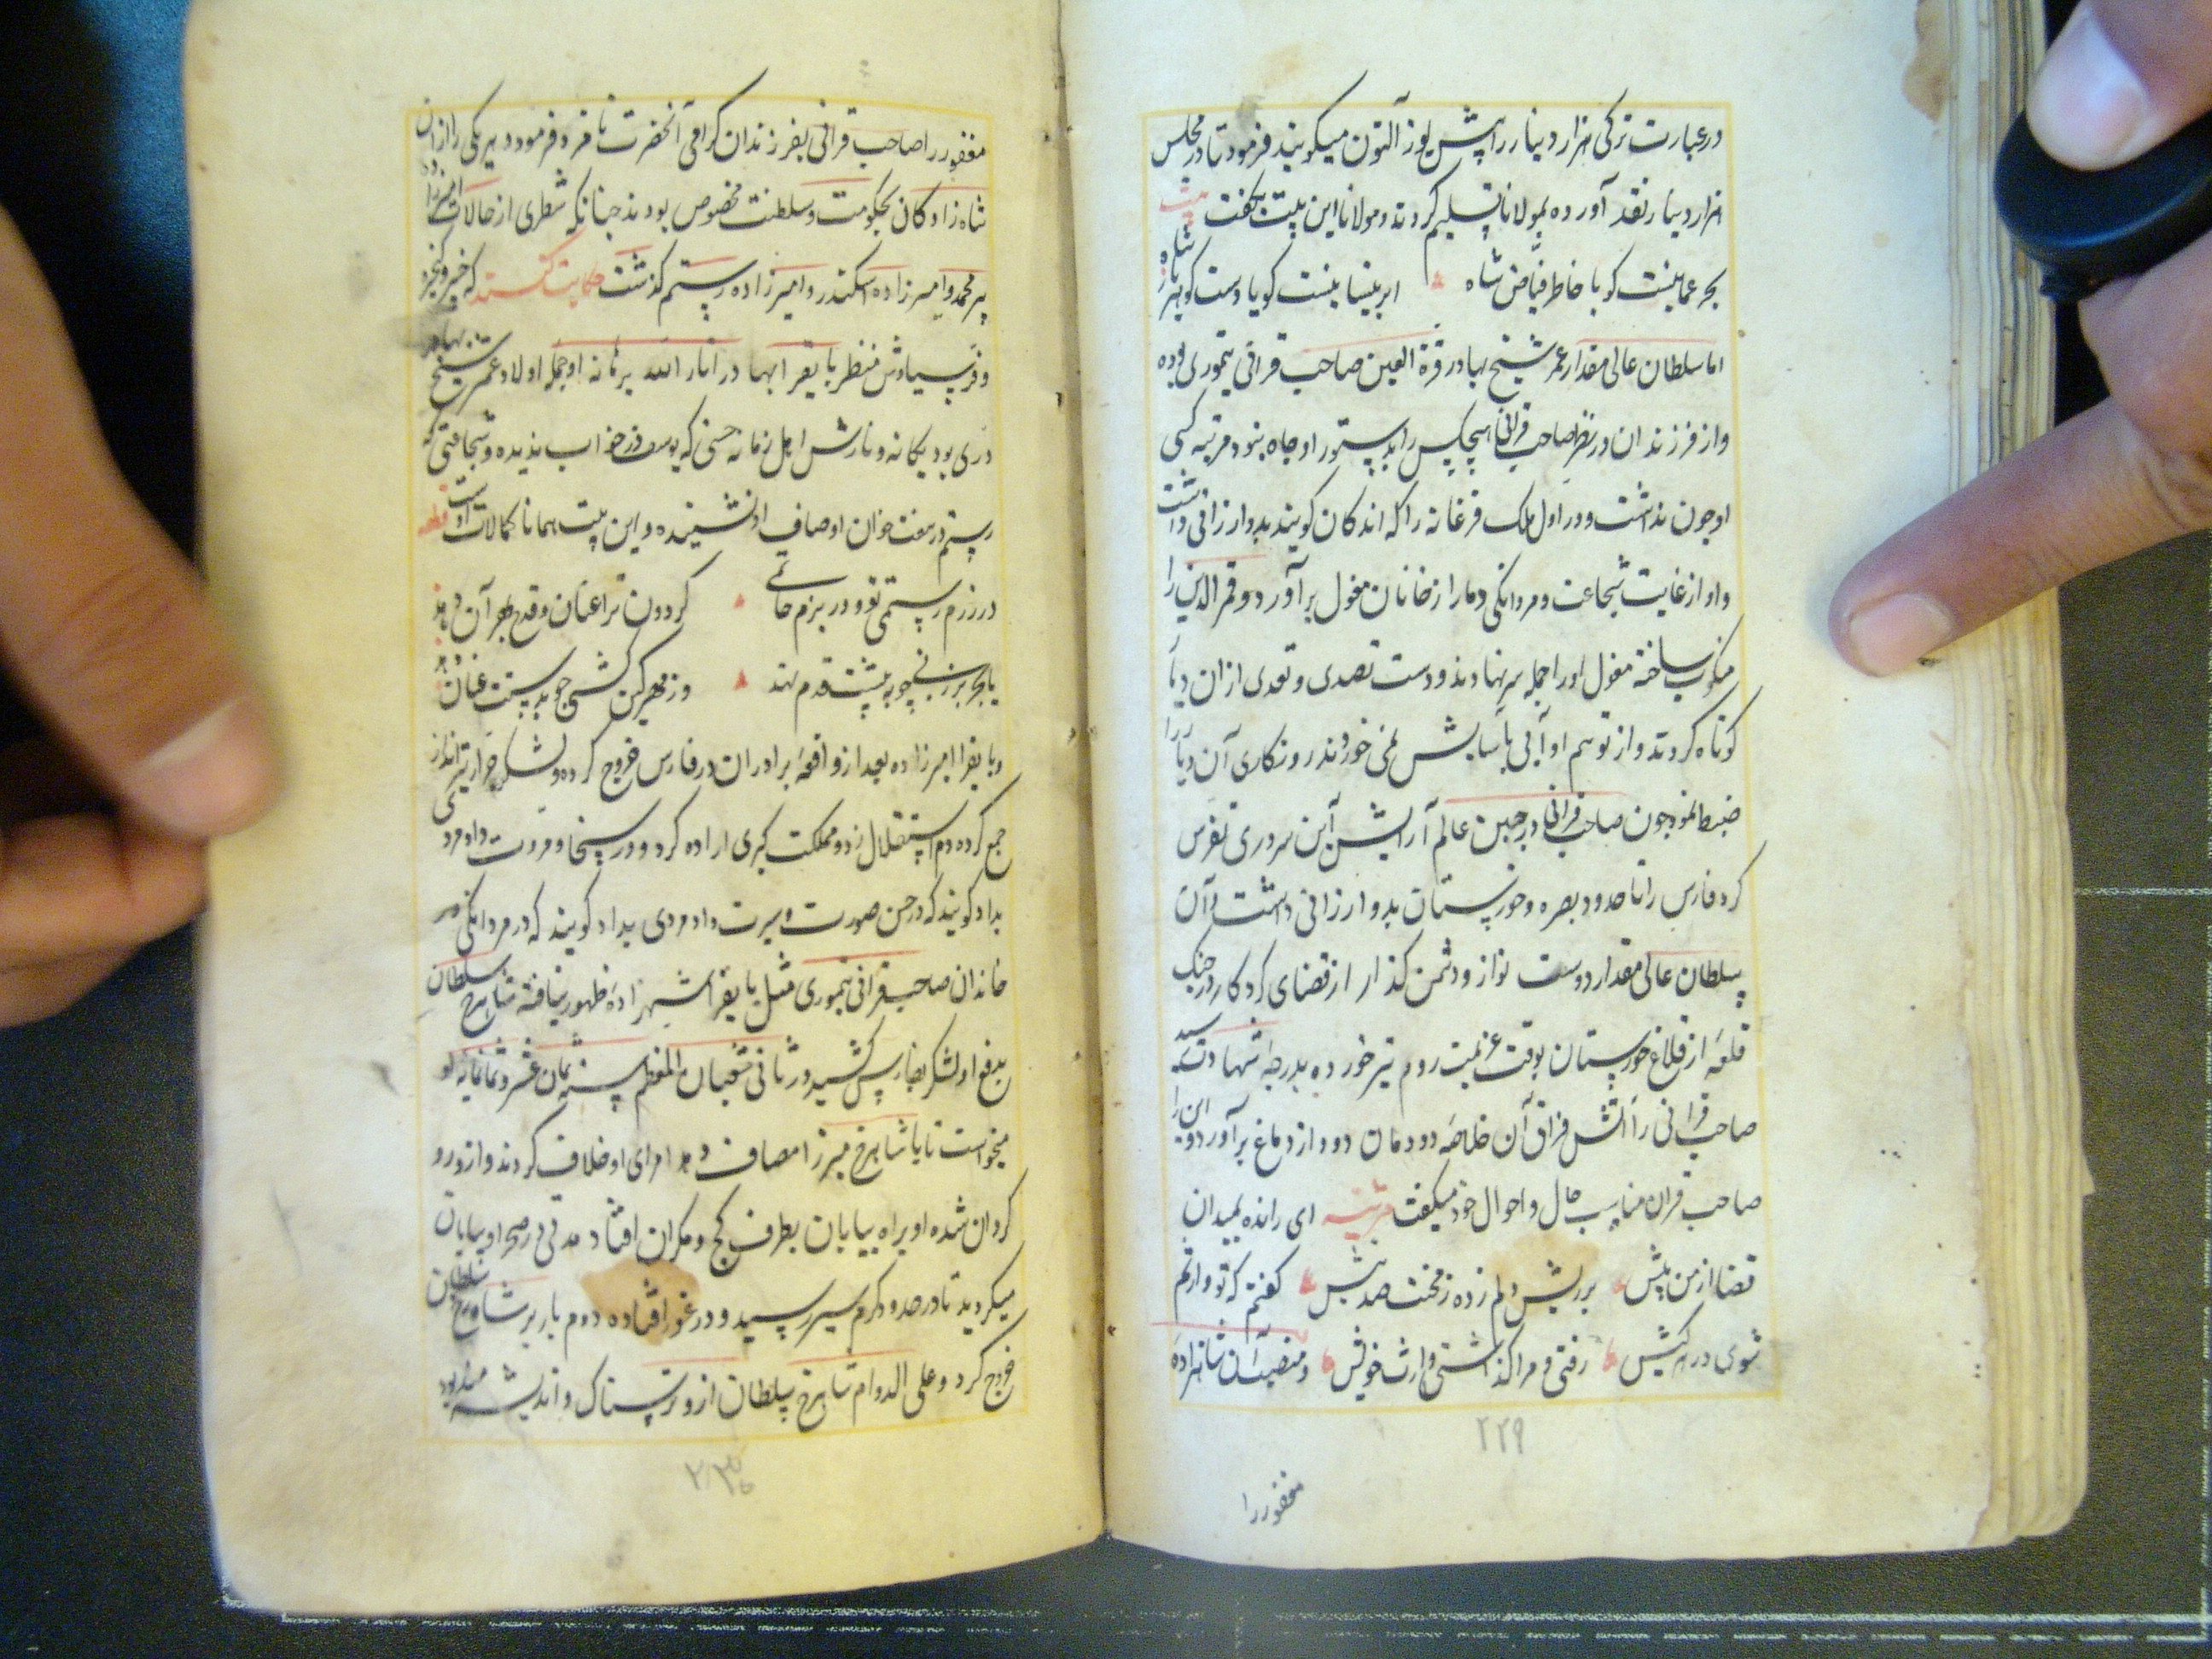 در عبارت ترکی هزار دینار را پیش یوز آلتون میکویند فرمود تا در مجلس
هزار دینار نقد آورده بمولانا تسلیم کردند و مولانا این بیت بکفت بیت
بحر عمانیست کویا خاطر فیاض شاه ابر نیسانیست کویا دست کوهربار شاه
اما سلطان عالی مقدار عمر شیخ بهادر قرة العین صاحب قرانی تیموری بوده
و از فرزندان در نظر صاحب قرانی هیچکس را بدستور او جاه نبود مرتبه کسی
او جون نداشت و در اول ملک فرغانه را که اندکان کویند بدو ارزانی داشت
و او از غایت شجاعت و مردانکی دمار از خانان مغول برآورد و قمر الدین را
منکوب ساخته مغول او را جمله سر نهادند و دست تصدی و تعدی از ان دیار
کوتاه کردند و از توهم او آبی بآسایش نمی خوردند روزکاری آن دیار را
ضبط نمود جون صاحب قرانی در جبین عالم آرایش آیین سروری تفرس
کرد فارس را تا حدود بصره و خوزستان بدو ارزانی داشت و آن
سلطان عالی مقدار دوست نواز و دشمن کذار از قضای کردکار در جنک
قلعهٔ از قلاع خوزستان بوقت عزیمت روم تیر خورده بدرجهٔ شهادت رسید
صاحب قرانی را آتش فراق آن خلاصهٔ دودمان دود از دماغ برآورد و این را
صاحب قران مناسب حال و احوال خود میکفت مرثیه ای رانده بمیدان
قضا از من پیش بر ریش دلم زده ز محنت صد نیش کفتم که تو وارثم
شوی در هر کیش رفتی و مرا کذاشتی وارث خویش و منصب آن شاهزادهٔ
۲۲۹
مغفور را
مغفور را صاحب قرانی بفرزندان کرامی آنحضرت نامزد فرمود و هر یکی را از آن
شاه زادکان بحکومت و سلطنت مخصوص بودند جنانکه شطری از حالات امیرزاده
پیر محمد و امیرزاده اسکندر و امیرزاده رستم کذشت حکایت کنند که خسرو
و فر سیاوش منظر بایقرا بهادر انار الله برهانه از جمله اولاد عمر شیخ بهادر
دری بود یکانه و نازش اهل زمانه حسنی که یوسف در خواب ندیده و شجاعتی که
رستم در هفت خوان اوصاف او نشنیده و این بیت همانا کمالات اوست قطعه
در رزم رستمی تو و در بزم حاتمی کردون ترا عنان و قدح بهر آن دهد
یا بحر بر زنی جو به پشت قدم نهد وز مهر کین کشی جو بدستت عنان دهد
و بایقرا امیرزاده بعد از واقعهٔ برادران در فارس خروج کرده و لشکر جرار تیرانداز
جمع کرده دم استقلال زد و مملکت کیری اراده کرد و در سخا و مروت داد مردمی
بداد کویند که در حسن صورت و سیرت داد مردی بداد کویند که در مردانکی در
خاندان صاحب قرانی تیموری مثل بایقرا شهزادهٔ ظهور نیافته شاهرخ سلطان
بدفع او لشکر بفارس کشید در ثانی شعبان المعظم سنه ثمان عشر و ثمانمائه او
میخواست تا با شاهرخ میرزا مصاف دهد امرای او خلاف کردند و ازو رو
کردان شده او براه بیابان بطرف کج و مکران افتاد مدتی در صحرا و بیابان
میکردید تا در حدود کرمسیر رسید و در غور افتاده دوم بار بر شاهرخ سلطان
خروج کرد و علی الدوام شاهرخ سلطان ازو ترسناک و اندیشه مند بود
۲۳۰